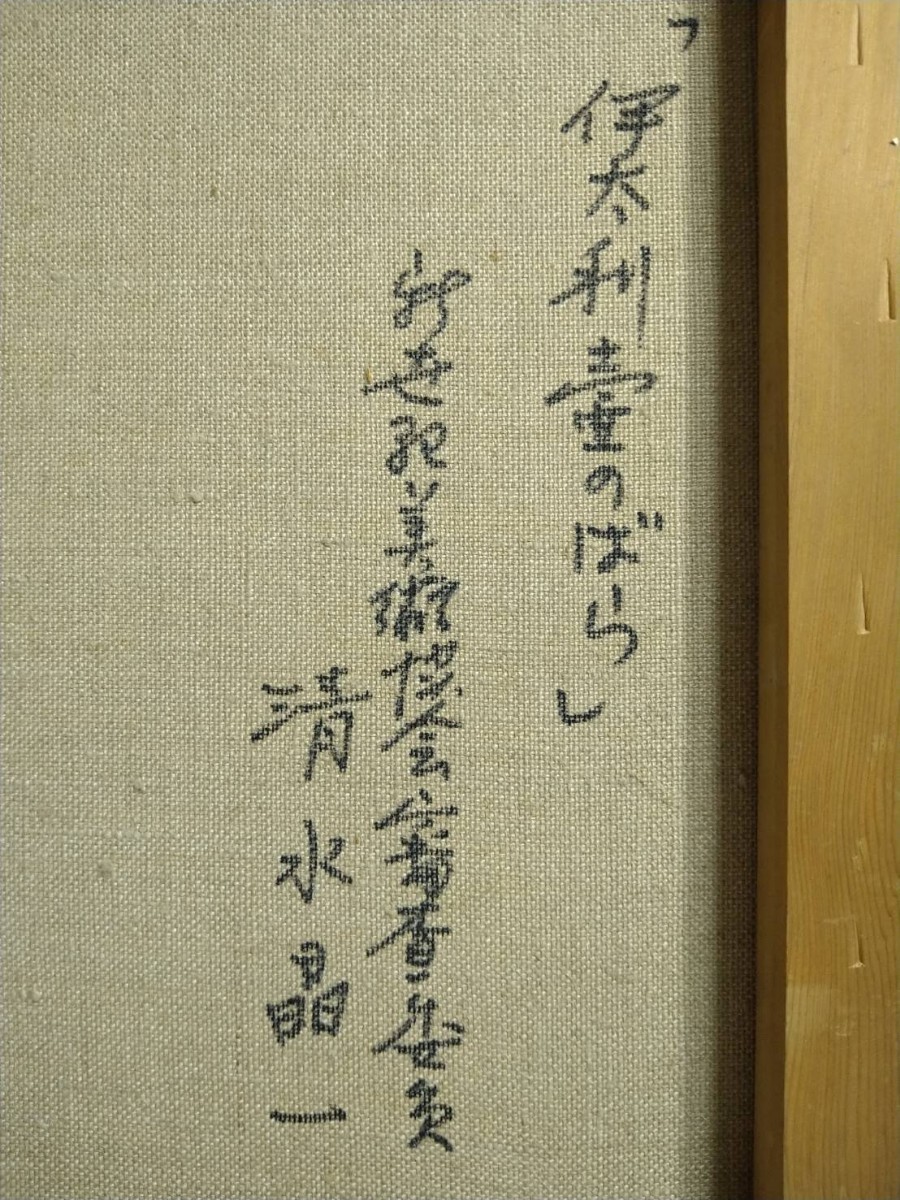 「伊太利壷のばら」
新世紀美術協会審査委員
清水晶一